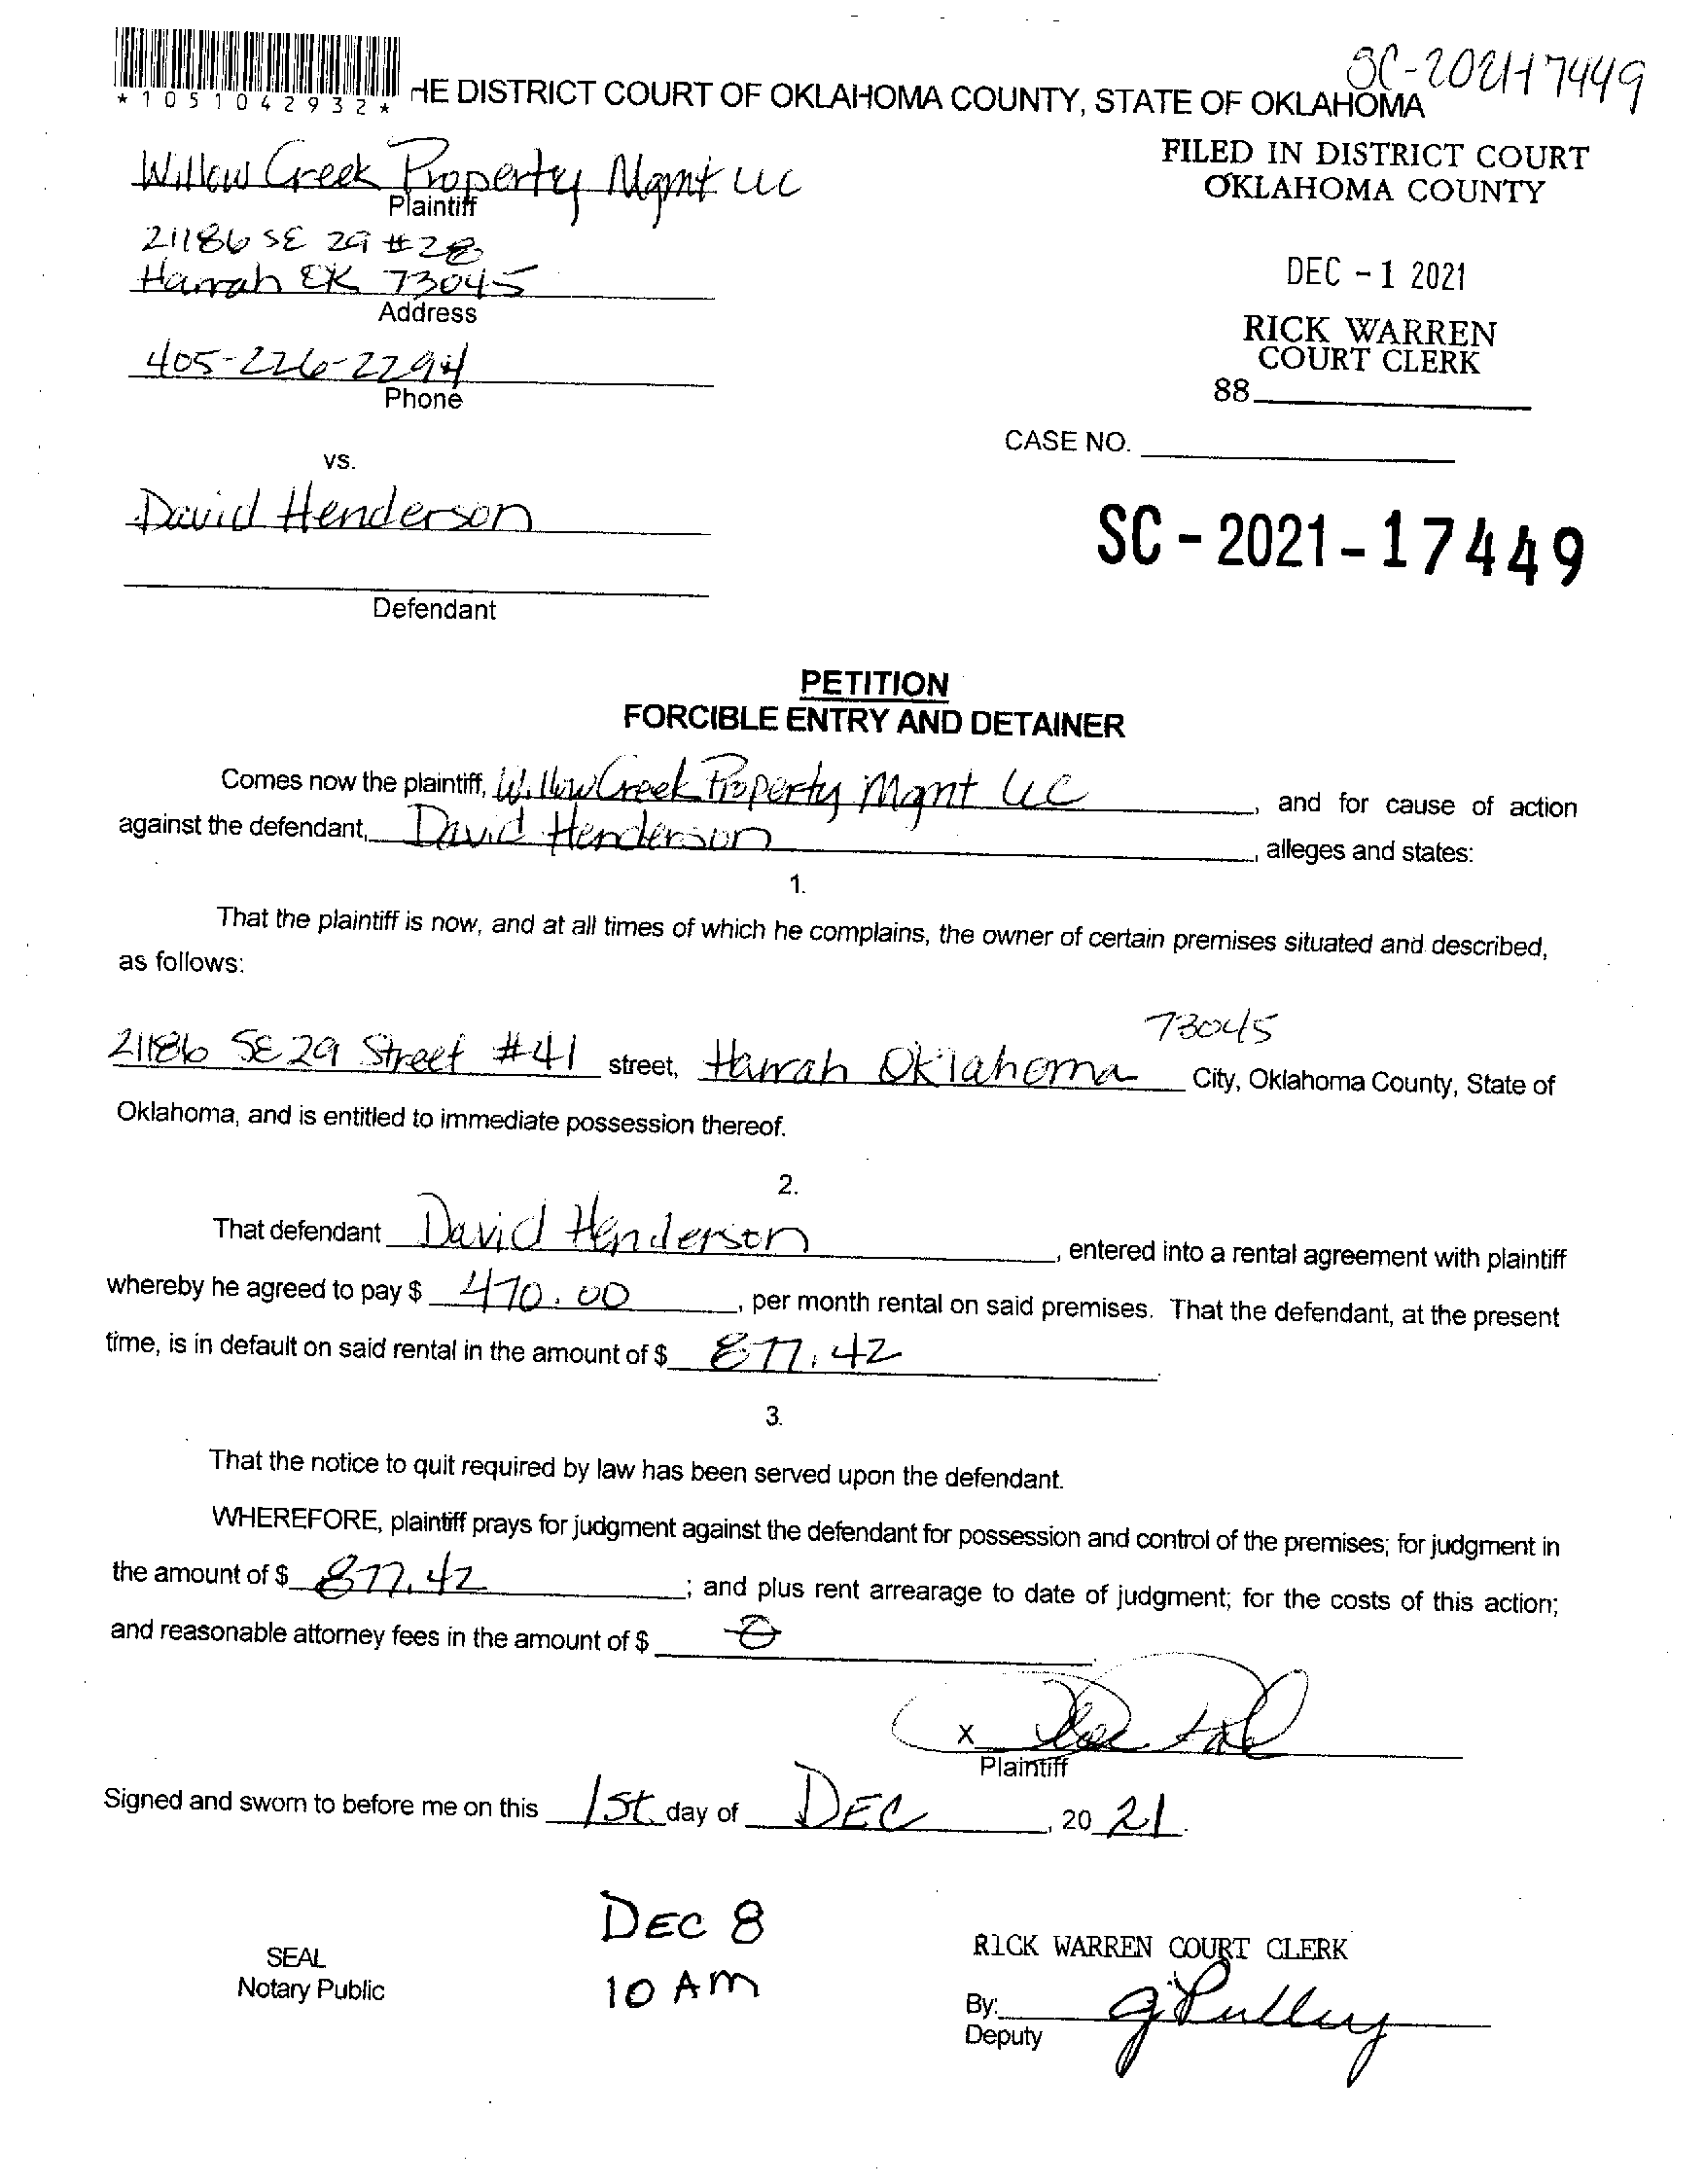 SC-2021-17449
*1051042932* HE DISTRICT COURT OF OKLAHOMA COUNTY, STATE OF OKLAHOMA
Willow Creek Property Mgmt LLC
Plaintiff
21186 SE 29 #28
Harrah OK 73045
Address
405-226-2294
Phone
FILED IN DISTRICT COURT
OKLAHOMA COUNTY
DEC -1 2021
RICK WARREN
COURT CLERK
88
CASE NO.
vs.
David Henderson
Defendant
SC-2021-17449
PETITION
FORCIBLE ENTRY AND DETAINER
Comes now the plaintiff, Willow Creek Property Mgnt LLC, and for cause of action
against the defendant, David Henderson, alleges and states:
1.
That the plaintiff is now, and at all times of which he complains, the owner of certain premises situated and described,
as follows:
73045
21186 SE 29 Street #41 street, Harrah Oklahoma City, Oklahoma County, State of
Oklahoma, and is entitled to immediate possession thereof.
2.
That defendant David Henderson, entered into a rental agreement with plaintiff
whereby he agreed to pay $ 470.00, per month rental on said premises. That the defendant, at the present
time, is in default on said rental in the amount of $ 877.42.
3.
That the notice to quit required by law has been served upon the defendant.
WHEREFORE, plaintiff prays for judgment against the defendant for possession and control of the premises; for judgment in
the amount of $ 877.42; and plus rent arrearage to date of judgment; for the costs of this action;
and reasonable attorney fees in the amount of $ 0.
X
Plaintiff
Signed and sworn to before me on this 1st day of DEC, 20 21.
DEC 8
10 AM
SEAL
Notary Public
RICK WARREN COURT CLERK
By: G Pulley
Deputy